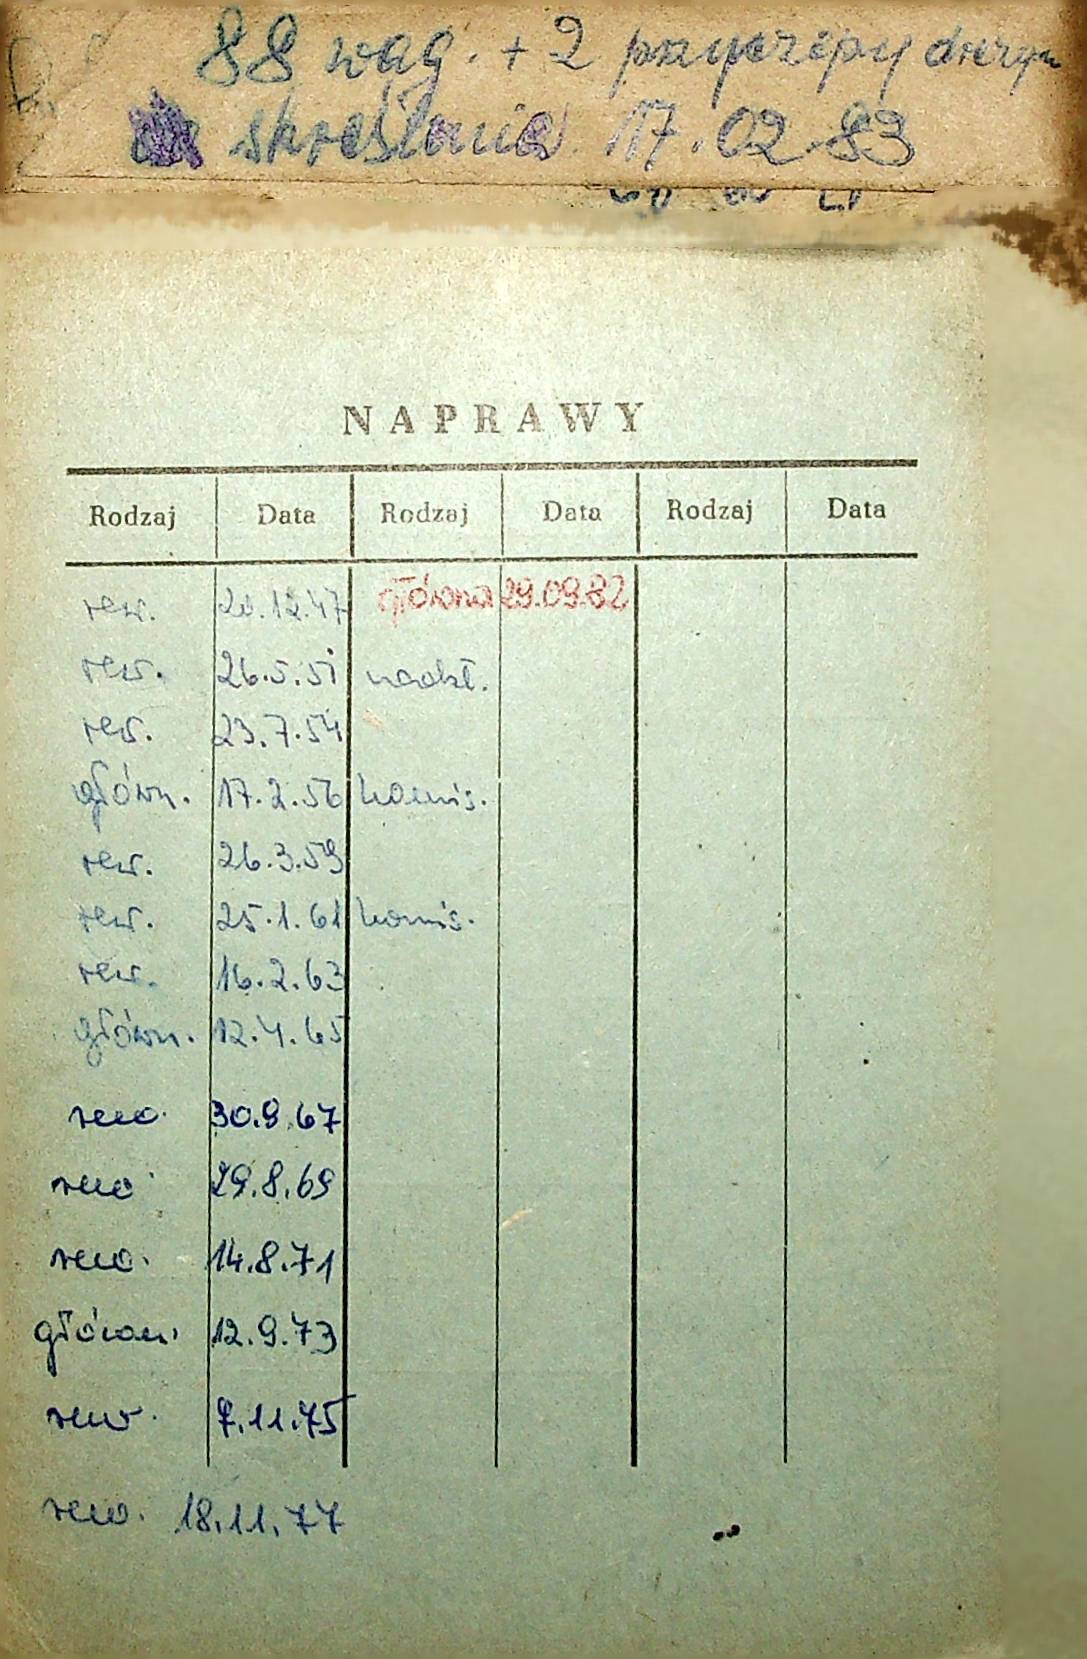 88 wag. + 2 przyczepy drezyn
skreślania 17.02.83
NAPRAWY
Rodzaj Data Rodzaj Data Rodzaj Data
rew. 20.12.47 główna 29.09.82
rew. 26.5.51 nadkł.
rew. 23.7.54
główn. 17.2.56 komis.
rew. 26.3.59
rew. 25.1.61 komis.
rew. 16.2.63
główn. 12.4.65
rew. 30.9.67
rew. 29.8.69
rew. 14.8.71
główn. 12.9.73
rew. 7.11.75
rew. 18.11.77